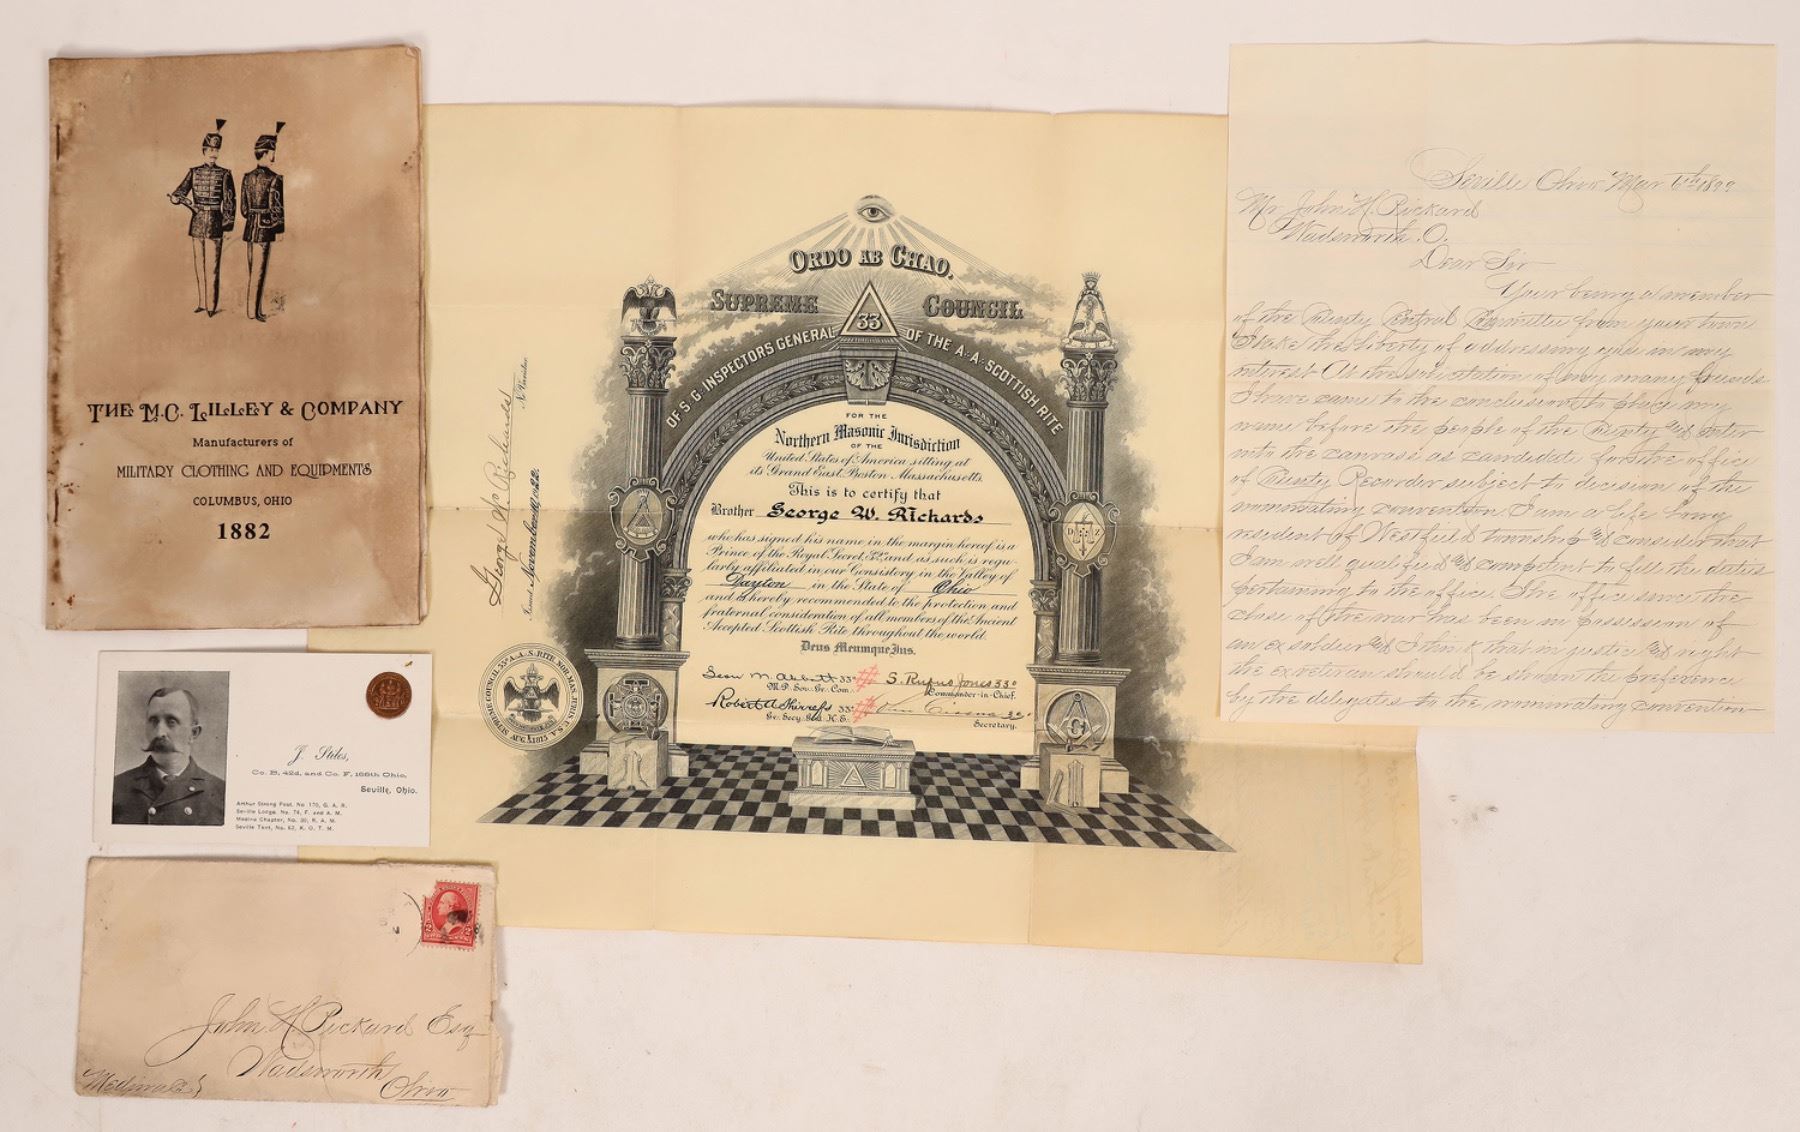 THE M.C. LILLEY & COMPANY
Manufacturers of
MILITARY CLOTHING AND EQUIPMENTS
COLUMBUS, OHIO
1882
J. Stiles,
Co. B, 42d, and Co. F, 166th Ohio,
Seville, Ohio.
Arthur Strong Post, No. 170, G. A. R.
Seville Lodge, No. 74, F. and A. M.
Medina Chapter, No. 30, R. A. M.
Seville Tent, No. 62, K. O. T. M.
John H. Rickard Esq
Wadsworth
Medina Co
Ohio
ORDO AB CHAO.
SUPREME COUNCIL
33
OF S.G. INSPECTORS GENERAL OF THE A∴A∴ SCOTTISH RITE
FOR THE
Northern Masonic Jurisdiction
OF THE
United States of America, sitting at
its Grand East, Boston, Massachusetts.
This is to certify that
Brother George W. Richards
who has signed his name in the margin hereof is a
Prince of the Royal Secret, 32° and as such is regu-
larly affiliated in our Consistory, in the Valley of
Dayton in the State of Ohio
and is hereby recommended to the protection and
fraternal consideration of all members of the Ancient
Accepted Scottish Rite, throughout the world.
Deus Meumque Jus.
Leon M. Abbott 33°
M.P. Sov. Gr. Com.
S. Rufus Jones 33°
Commander-in-Chief.
Robert A Shirrefs 33°
Gr. Secy. Gen. H.E.
33°
Secretary.
George W. Richards
D Z
SUPREME COUNCIL 33° A. A. S. RITE, NOR. MAS. JURIS. U.S.A.
AUG. 5 1813
Seville Ohio Mar 6th 1899
Mr John H. Rickard
Wadsworth. O.
Dear Sir
Your being a member
of the County Central Committee from your town
I take the liberty of addressing you in my
interest. At the solicitation of my many friends
I have came to the conclusion to place my
name before the people of the County and enter
into the canvass as candidate for the office
of County Recorder subject to decision of the
nominating convention. I am a life long
resident of Westfield township and consider that
I am well qualified and competent to fill the duties
pertaining to the office. The office since the
close of the war has been in possession of
an ex soldier and I think that in justice and right
the ex veteran should be shown the preference
by the delegates to the nominating convention